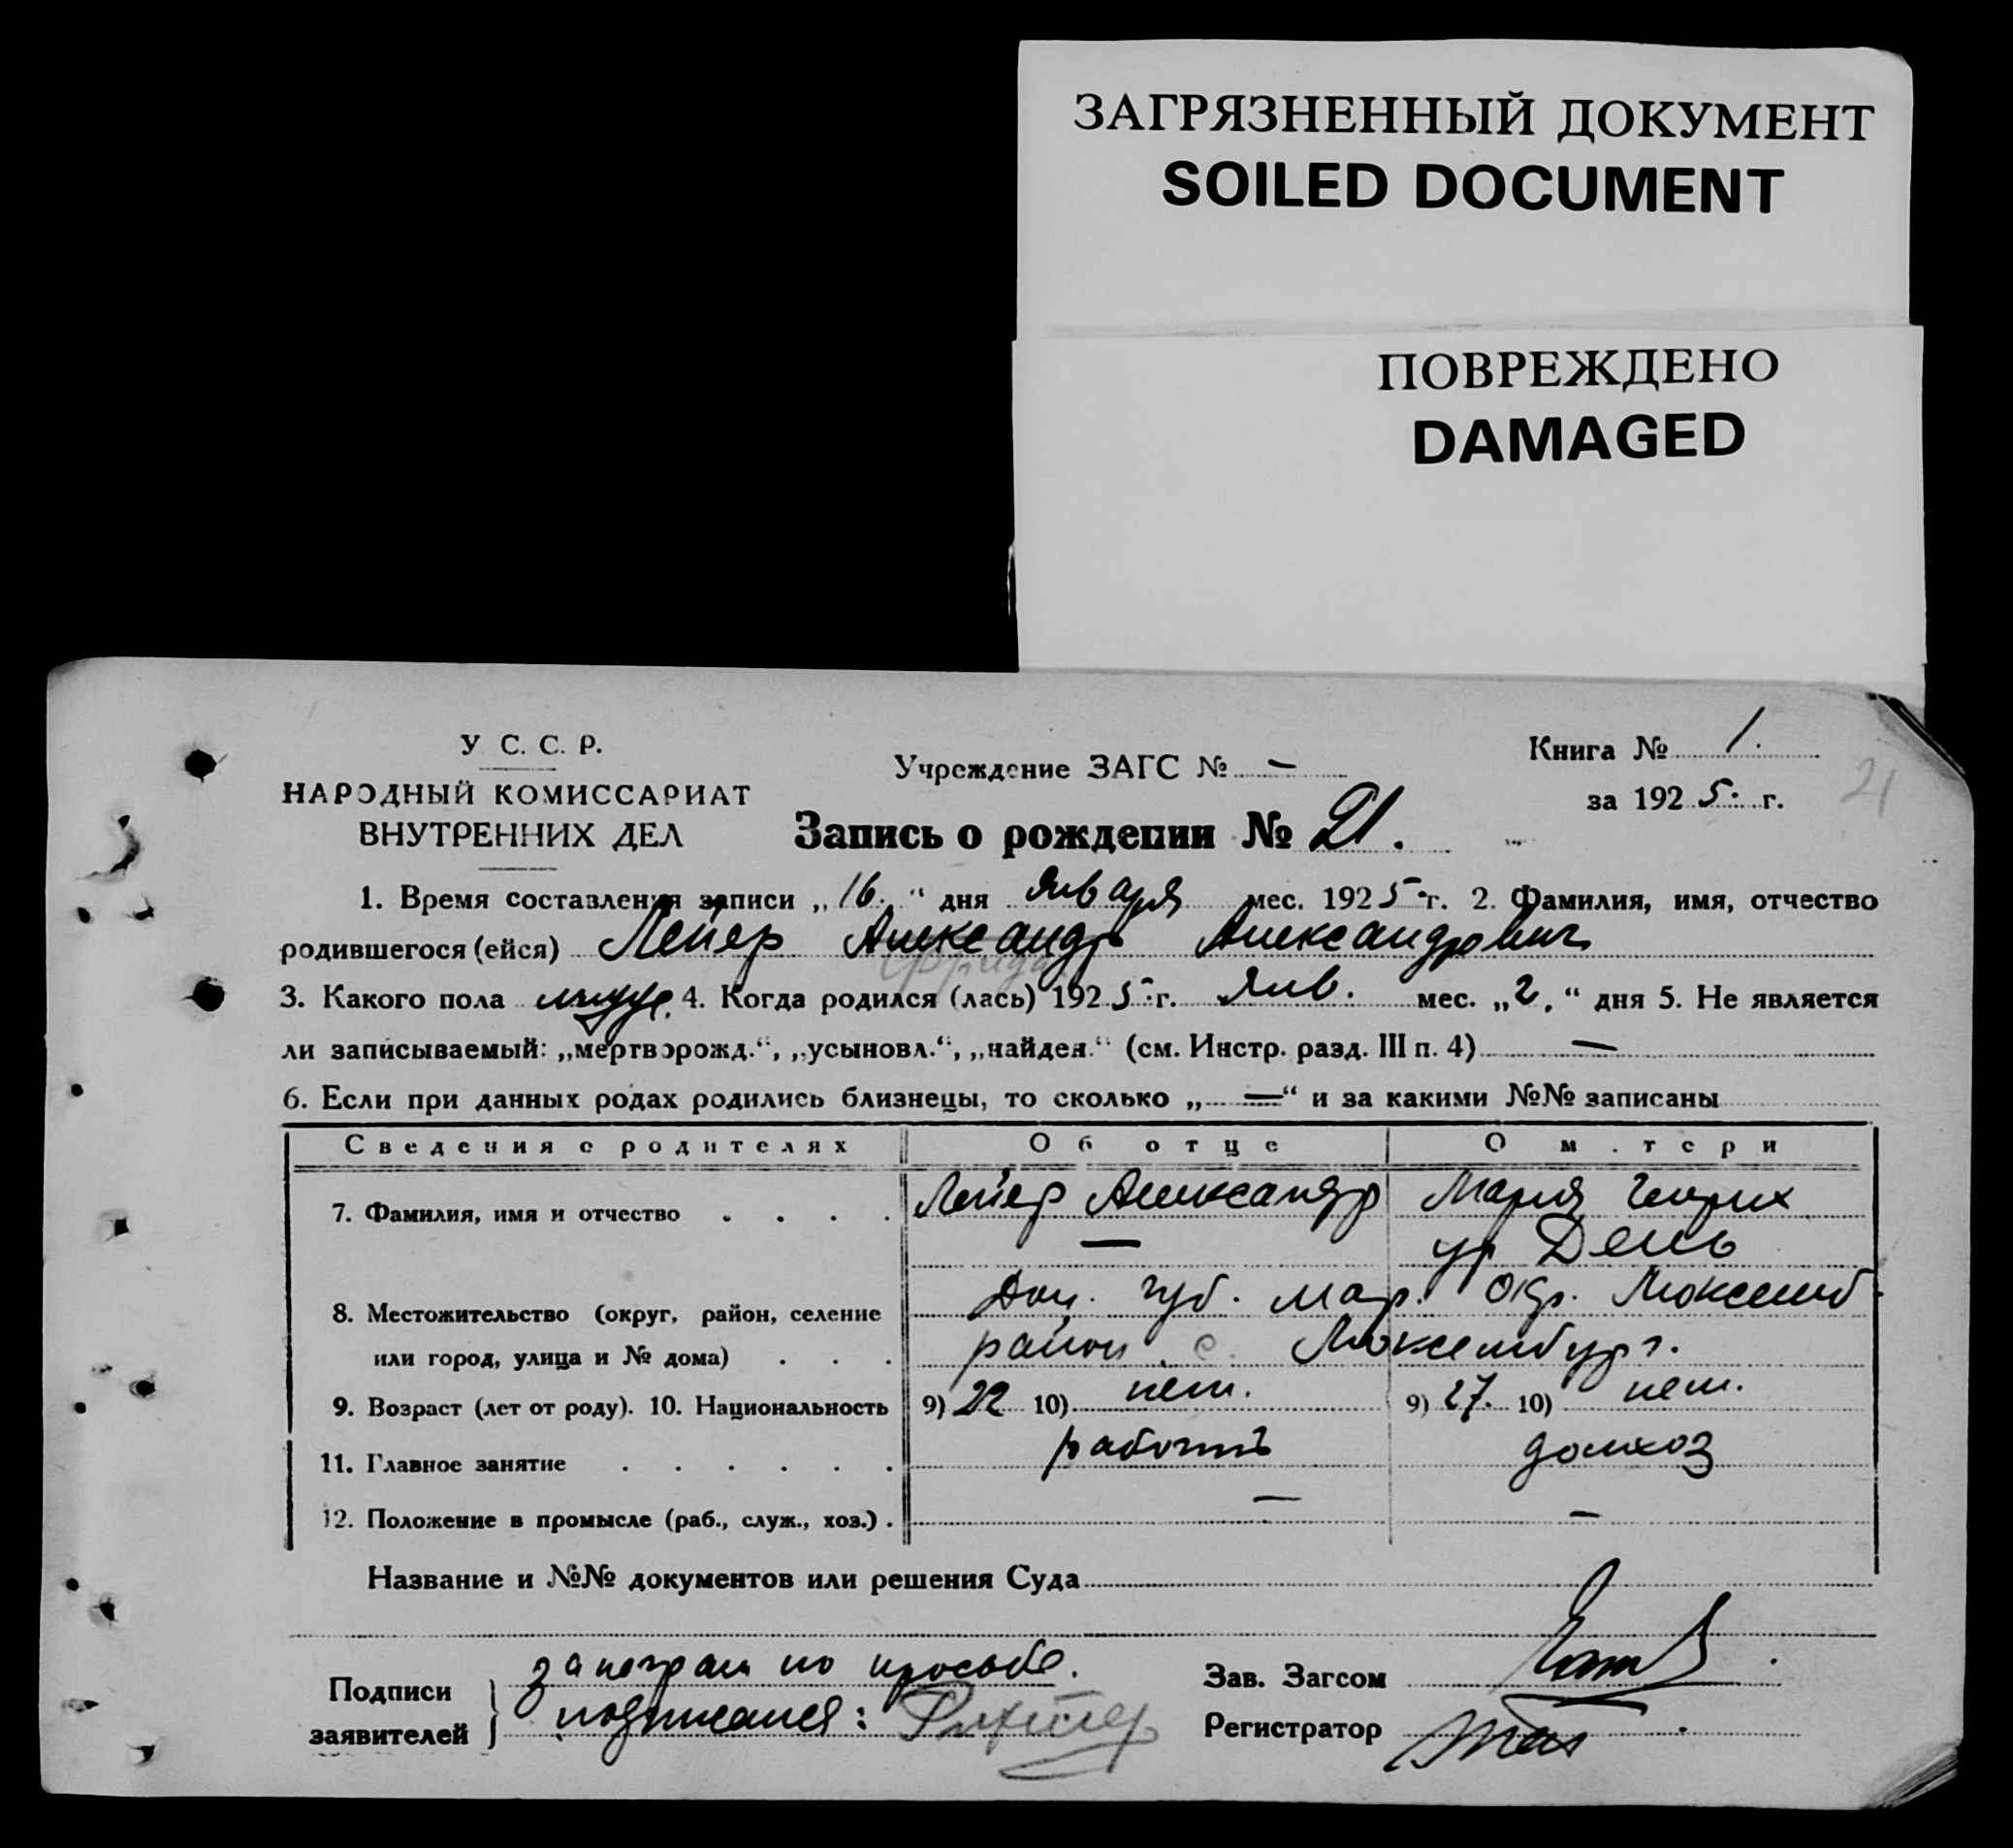 ЗАГРЯЗНЕННЫЙ ДОКУМЕНТ
SOILED DOCUMENT
ПОВРЕЖДЕНО
DAMAGED
У С. С. Р.
НАРОДНЫЙ КОМИССАРИАТ
ВНУТРЕННИХ ДЕЛ
Учреждение ЗАГС № —
Книга № 1.
за 1925. г.
21
Запись о рождении № 21.
1. Время составления записи „16.“ дня января мес. 1925 г. 2. Фамилия, имя, отчество
родившегося (ейся) Лейер Александр Александрович
3. Какого пола мужс. 4. Когда родился (лась) 1925 г. Янв. мес. „2.“ дня 5. Не является
ли записываемый: „мертворожд.“, „усыновл.“, „найден.“ (см. Инстр. разд. III п. 4) —
6. Если при данных родах родились близнецы, то сколько „—“ и за какими №№ записаны
Сведения о родителях Об отце О м.тери
7. Фамилия, имя и отчество . . . . Лейер Александр Мария Генрих
— ур День
8. Местожительство (округ, район, селение Дон. губ. Мар. Окр. Люксемб.
или город, улица и № дома) . . . район с. Люксембург.
9. Возраст (лет от роду). 10. Национальность 9) 22 10) нем. 9) 27. 10) нем.
11. Главное занятие . . . . . . работ домхоз
12. Положение в промысле (раб., служ., хоз.) . — —
Название и №№ документов или решения Суда
Подписи заявителей } за неграм по просьбе.
подписался: Рихтер
Зав. Загсом
Регистратор